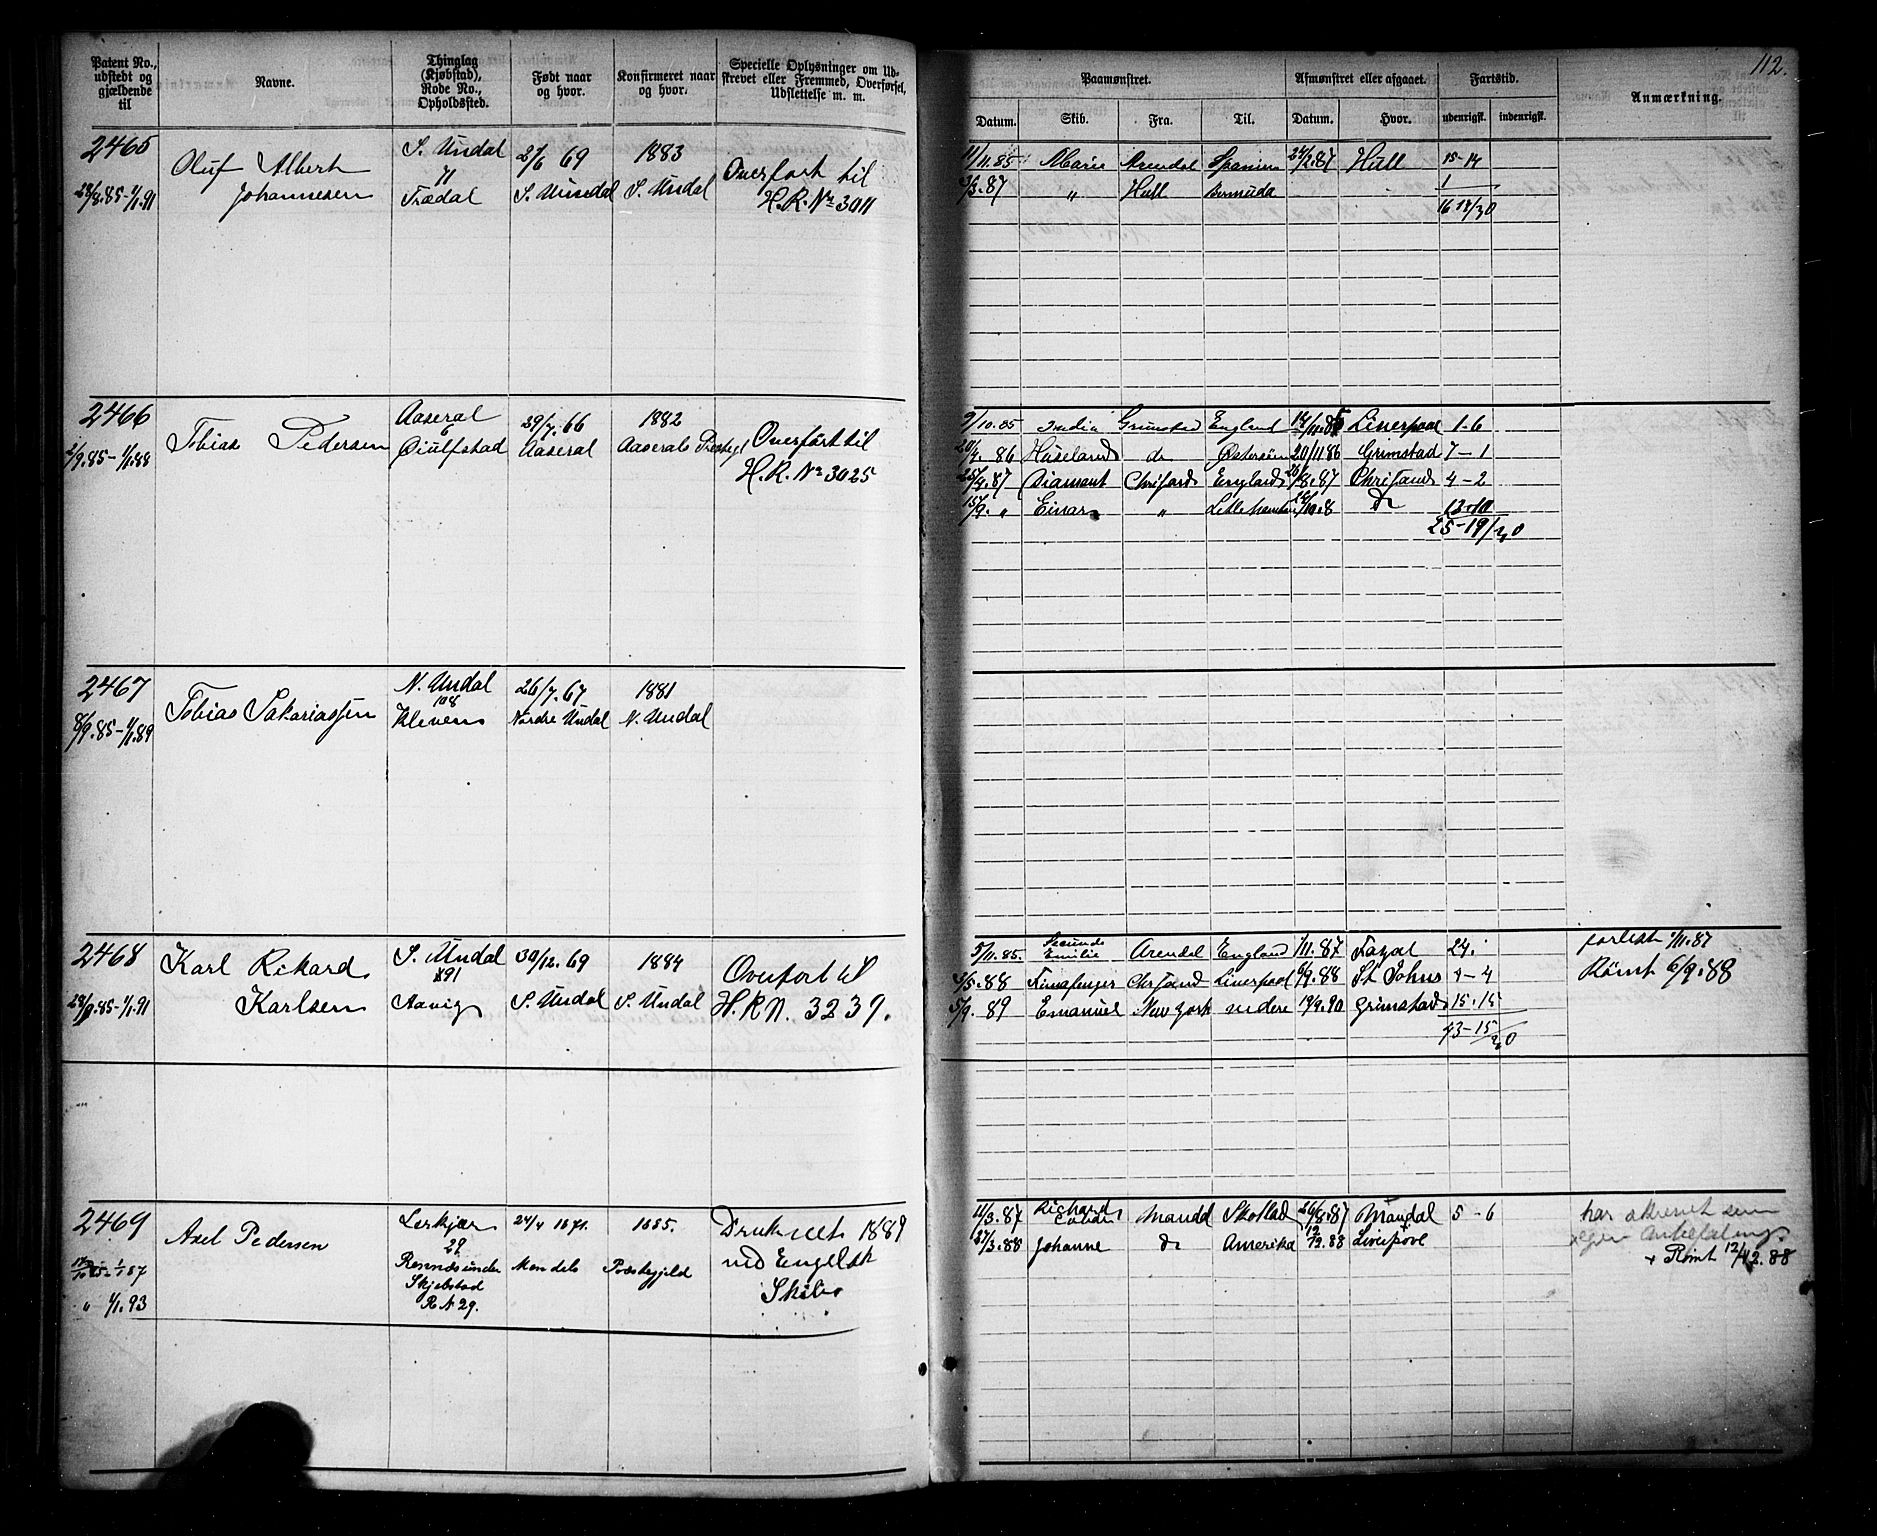 112.
Patent No., udstedt og gjældende til
Navne.
Thinglag (Kjøbstad), Rode No., Opholdssted.
Født naar og hvor.
Konfirmeret naar og hvor.
Specielle Oplysninger om Udskrevet eller Fremmed, Overførsel, Udslettelse m. m.
Paamønstret.
Afmønstret eller afgaaet.
Fartstid.
Anmærkning.
Datum. Skib. Fra. Til. Datum. Hvor. udenrigsk. indenrigsk.
2465
28/9.85-1/1.91
Oluf Albert
Johannesen
S. Undal
71
Trædal
2/6 69
S. Undal
1883
S. Undal
Overført til
H.R. No 3011
11/11.85 Marie Arendal Spanien 24/2.87 Hull 15-14
3/3.87 " Hull Bermuda 1
16 14/30
2466
1/9.85-1/1.88
Tobias Pedersen
Aaseral
6
Øiulfstad
29/7.66
Aaseral
1882
Aaserals Præstegj
Overført til
H.R. No 3025
9/10.85 India Grimstad England Liverpool 1-6
20/4.86 Huseland do Østersøen 20/11 86 Grimstad 7-1
25/4.87 Diamant Chrisand England 26/8.87 Chrisand 4-2
15/9. " Einar " do 13-10
25-19/30
2467
8/9.85-1/1.89
Tobias Sakariassen
N. Undal
108
Kleven
26/7.67
Nordre Undal
1881
N. Undal
2468
28/9.85-1/1.91
Karl Rikard
Karlsen
S. Undal
191
Aavig
30/12.69
S. Undal
1884
S. Undal
Overført til
H.R.N. 3239.
5/11.85. Secunde Emilie Arendal England 1/11.87 Fayal 24.
3/5.88 Chrsand Liverpool 6/9.88 St Johns 4-4
5/9.89 Emanuel New York videre 19/9.90 Grimstad 15.15
43-15/30
forlist 1/11.87
Rømt 6/9.88
2469
1/1 87
" 1/1.93
Axel Pedersen
29
Rennæs under
Skjebstad
R N 29.
24/4 1871.
Mandals
1885.
Præstegjeld
Druknet 1889
ved Engelsk
Skib
11/3.87 Richard Mandal Skotland 26/8.87 Mandal 5-6
27/3.88 Johanne do Amerika Liverpool
har
Anbefaling
+ Rømt 12/12.88